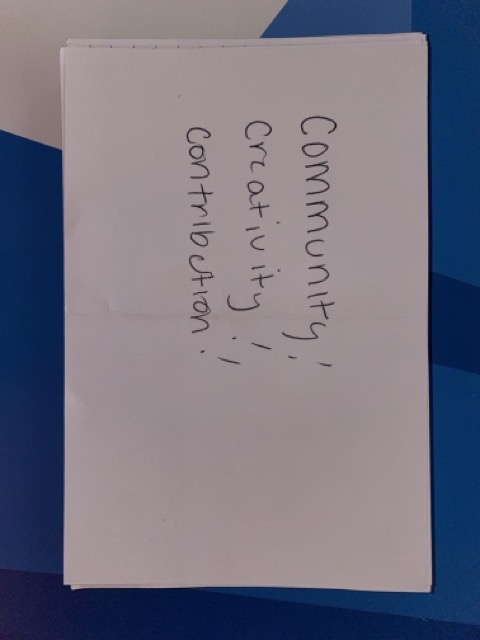 Community!
Creativity!
Contribution!